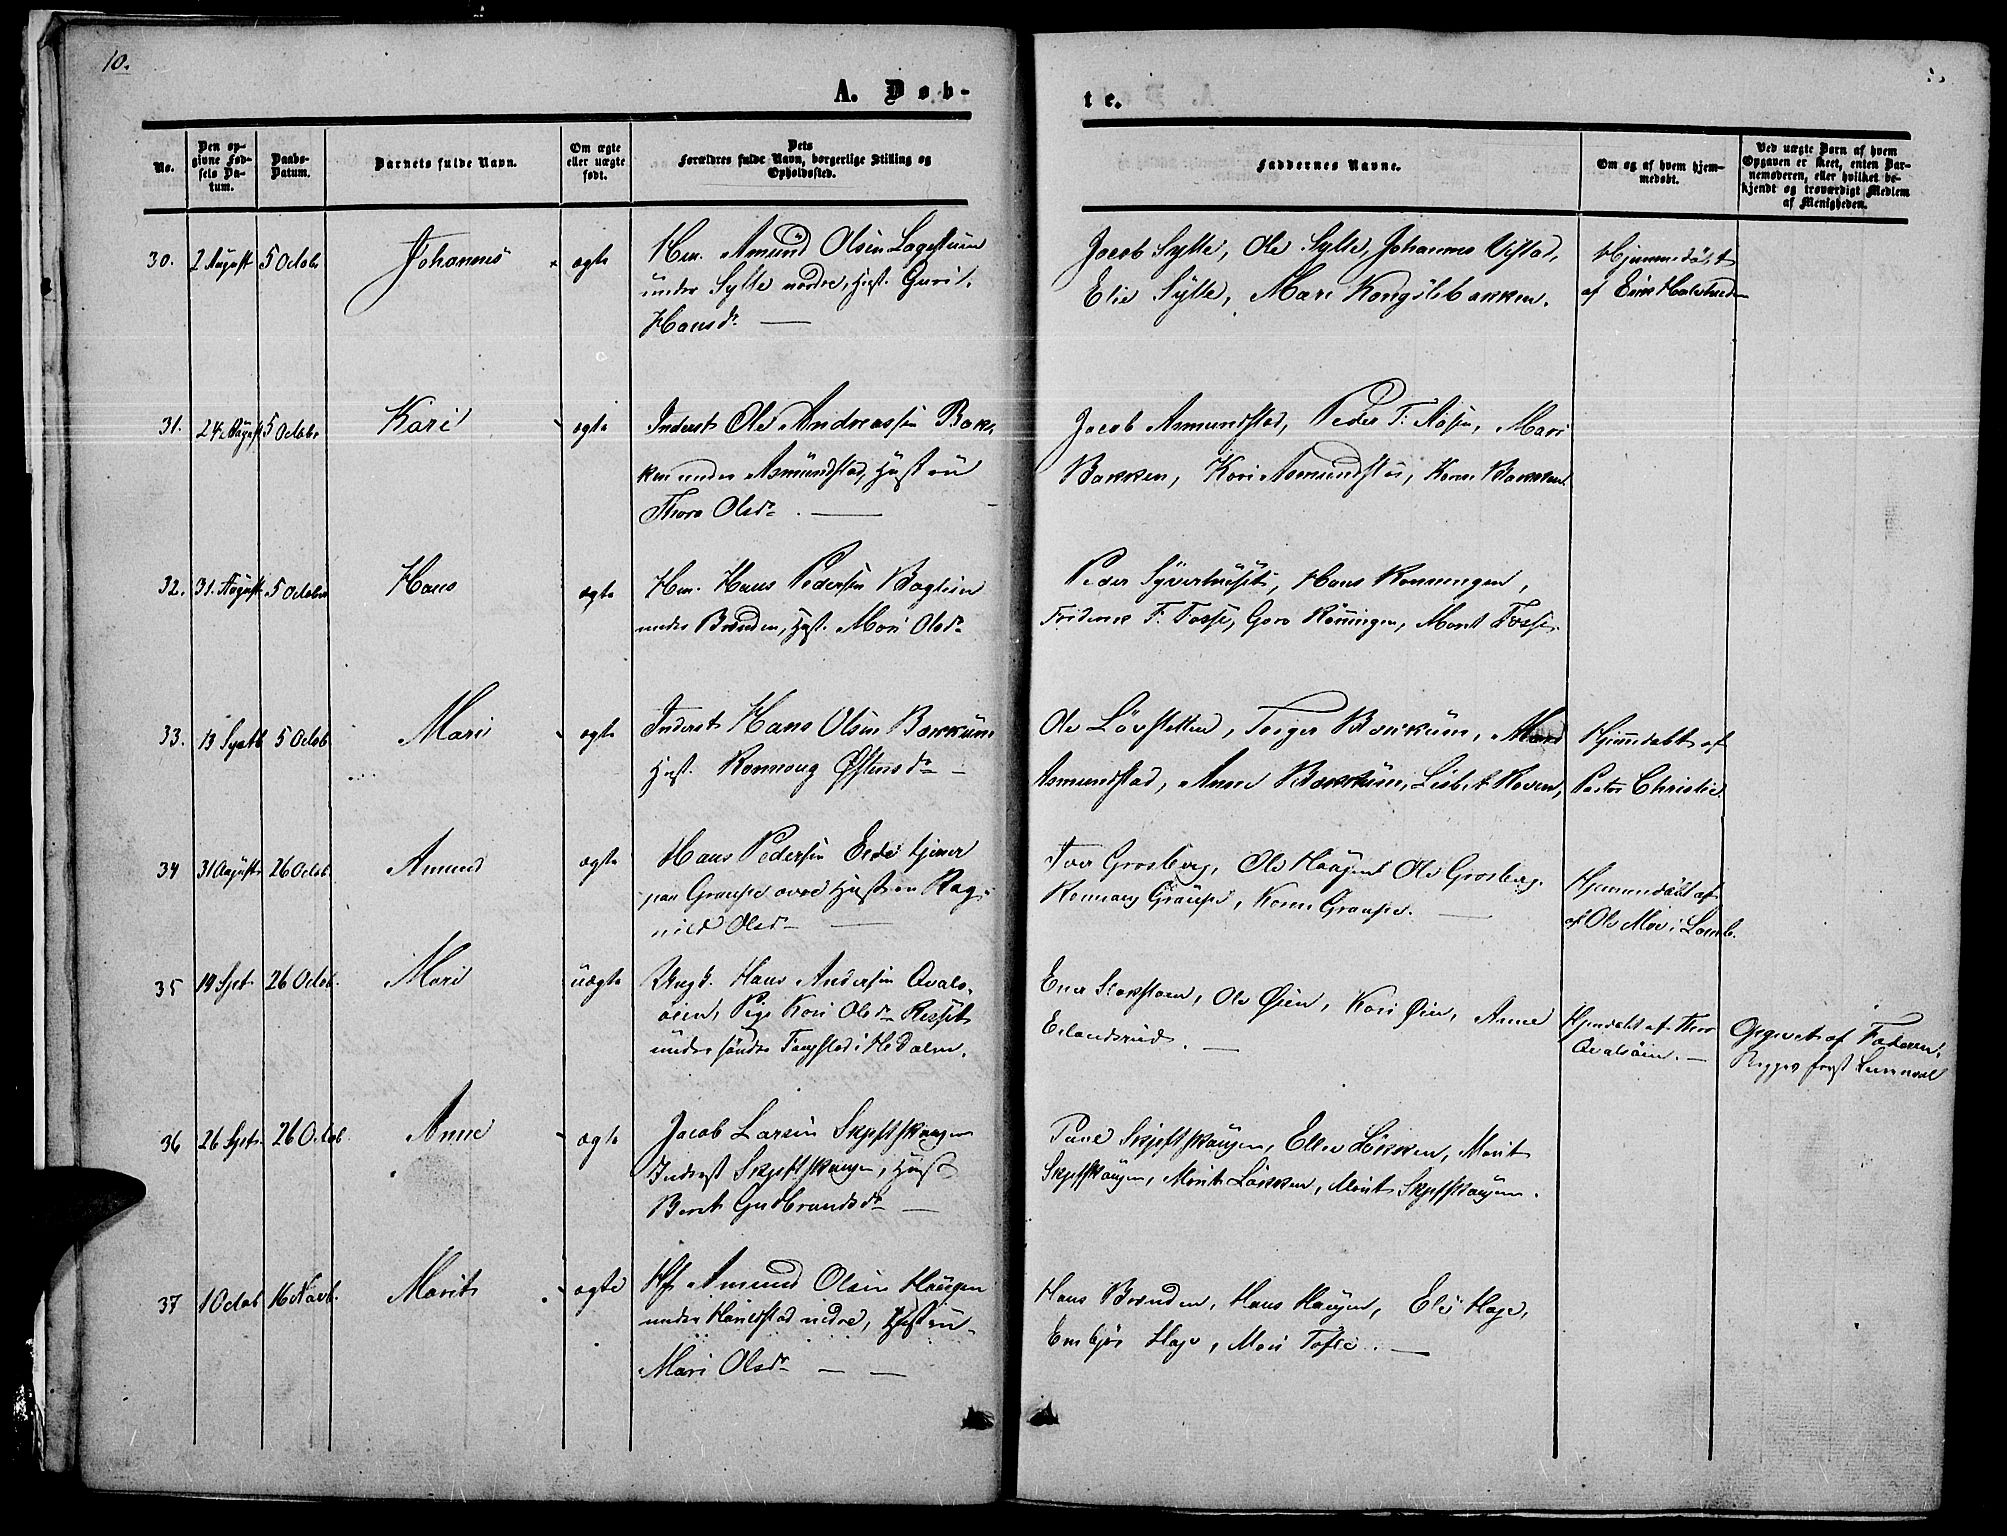 10.
A. Døb-
te.
No.
Den op-
givne Fød-
sels Da-
tum.
Daabs-
Datum.
Barnets fulde Navn.
Om ægte
eller uægte
født.
Dets
Forældres fulde Navn, borgerlige Stilling og
Opholdssted.
Faddernes Navne.
Om og af hvem hjem-
medøbt.
Ved uægte Børn af hvem
Opgaven er skeet, enten Bar-
nemoderen, eller hvilket be-
kjendt og troværdigt Medlem
af Menigheden.
30.
2 August
5 Octobr
Johannes
ægte
Hm. Amund Olsen
under Sylte nordre, Hust. Guri
Hansdr
Jacob Sylte, Ole Sylte, Johannes
Elie Sylte, Mari Kongslibakken.
Hjemmedøbt
af
31.
24 August
5 Octobr
Kari
ægte
Inderst Ole Andreassen Bak-
ken under Asmundstad, Hustru
Thora Olsdr.
Jacob Asmundstad, Peder T. Mari
Bakken, Kari Asmundstad, Bakken
32.
31. August
5 Octobr
Hans
ægte
Hm. Hans Pedersen
under Brænden, Hust. Mari Olsdr
Peder Hans Rønningen,
F. Fosse, Rønningen, Marit Fosse.
33.
13 Septb
5 Octob
Mari
ægte
Inderst Hans Olsen Bakkum
Hust. Rønnoug Østensdr
Ole Løvsletten, Torger Bakkum,
Asmundstad, Anne Bakkum, Lisbet
Hjemdøbt af
Pastor Christie.
34
31 August
26 Octob
Amund
ægte
Hans Pedersen Eide tjener
paa Graupe øvre Hustru Rag-
nild Olsdr
Iver Grosberg, Ole Haugen Ole Grosberg.
Rønnaug Graupe, Graupe.
Hjemmedøbt af
af Ole Moe i
35
19 Sept
26 Octob.
Mari
uægte
Ungk. Hans Andersen Qvals-
øien, Pige Kari Olsdr
under søndre i Hedalen.
Ener Ole Øien, Kari Øien, Anne
Erlandsrud.
Hjemdøbt af Thor
Qvalsøien.
Opgivet af Faderen.
Begges først Leiermaal
36
26 Sept.
26 Octob.
Anne
ægte
Jacob Larsen Skjeftskaugen
Inderst Skjeftskaugen, Hust
Berit Gudbrandsdr
Skjeftskaugen, Ellen Løkken, Marit
Skjeftskaugen, Marit Løkken, Marit Skjeftskaugen.
37
1 Octob
16 Novb.
Marit
ægte
Amund Olsen Haugen
under Harildstad nedre, Hustru
Mari Olsdr
Hans Brænden, Hans Haugen, Eli Hage,
Embjør Hage, Mari Tofte.